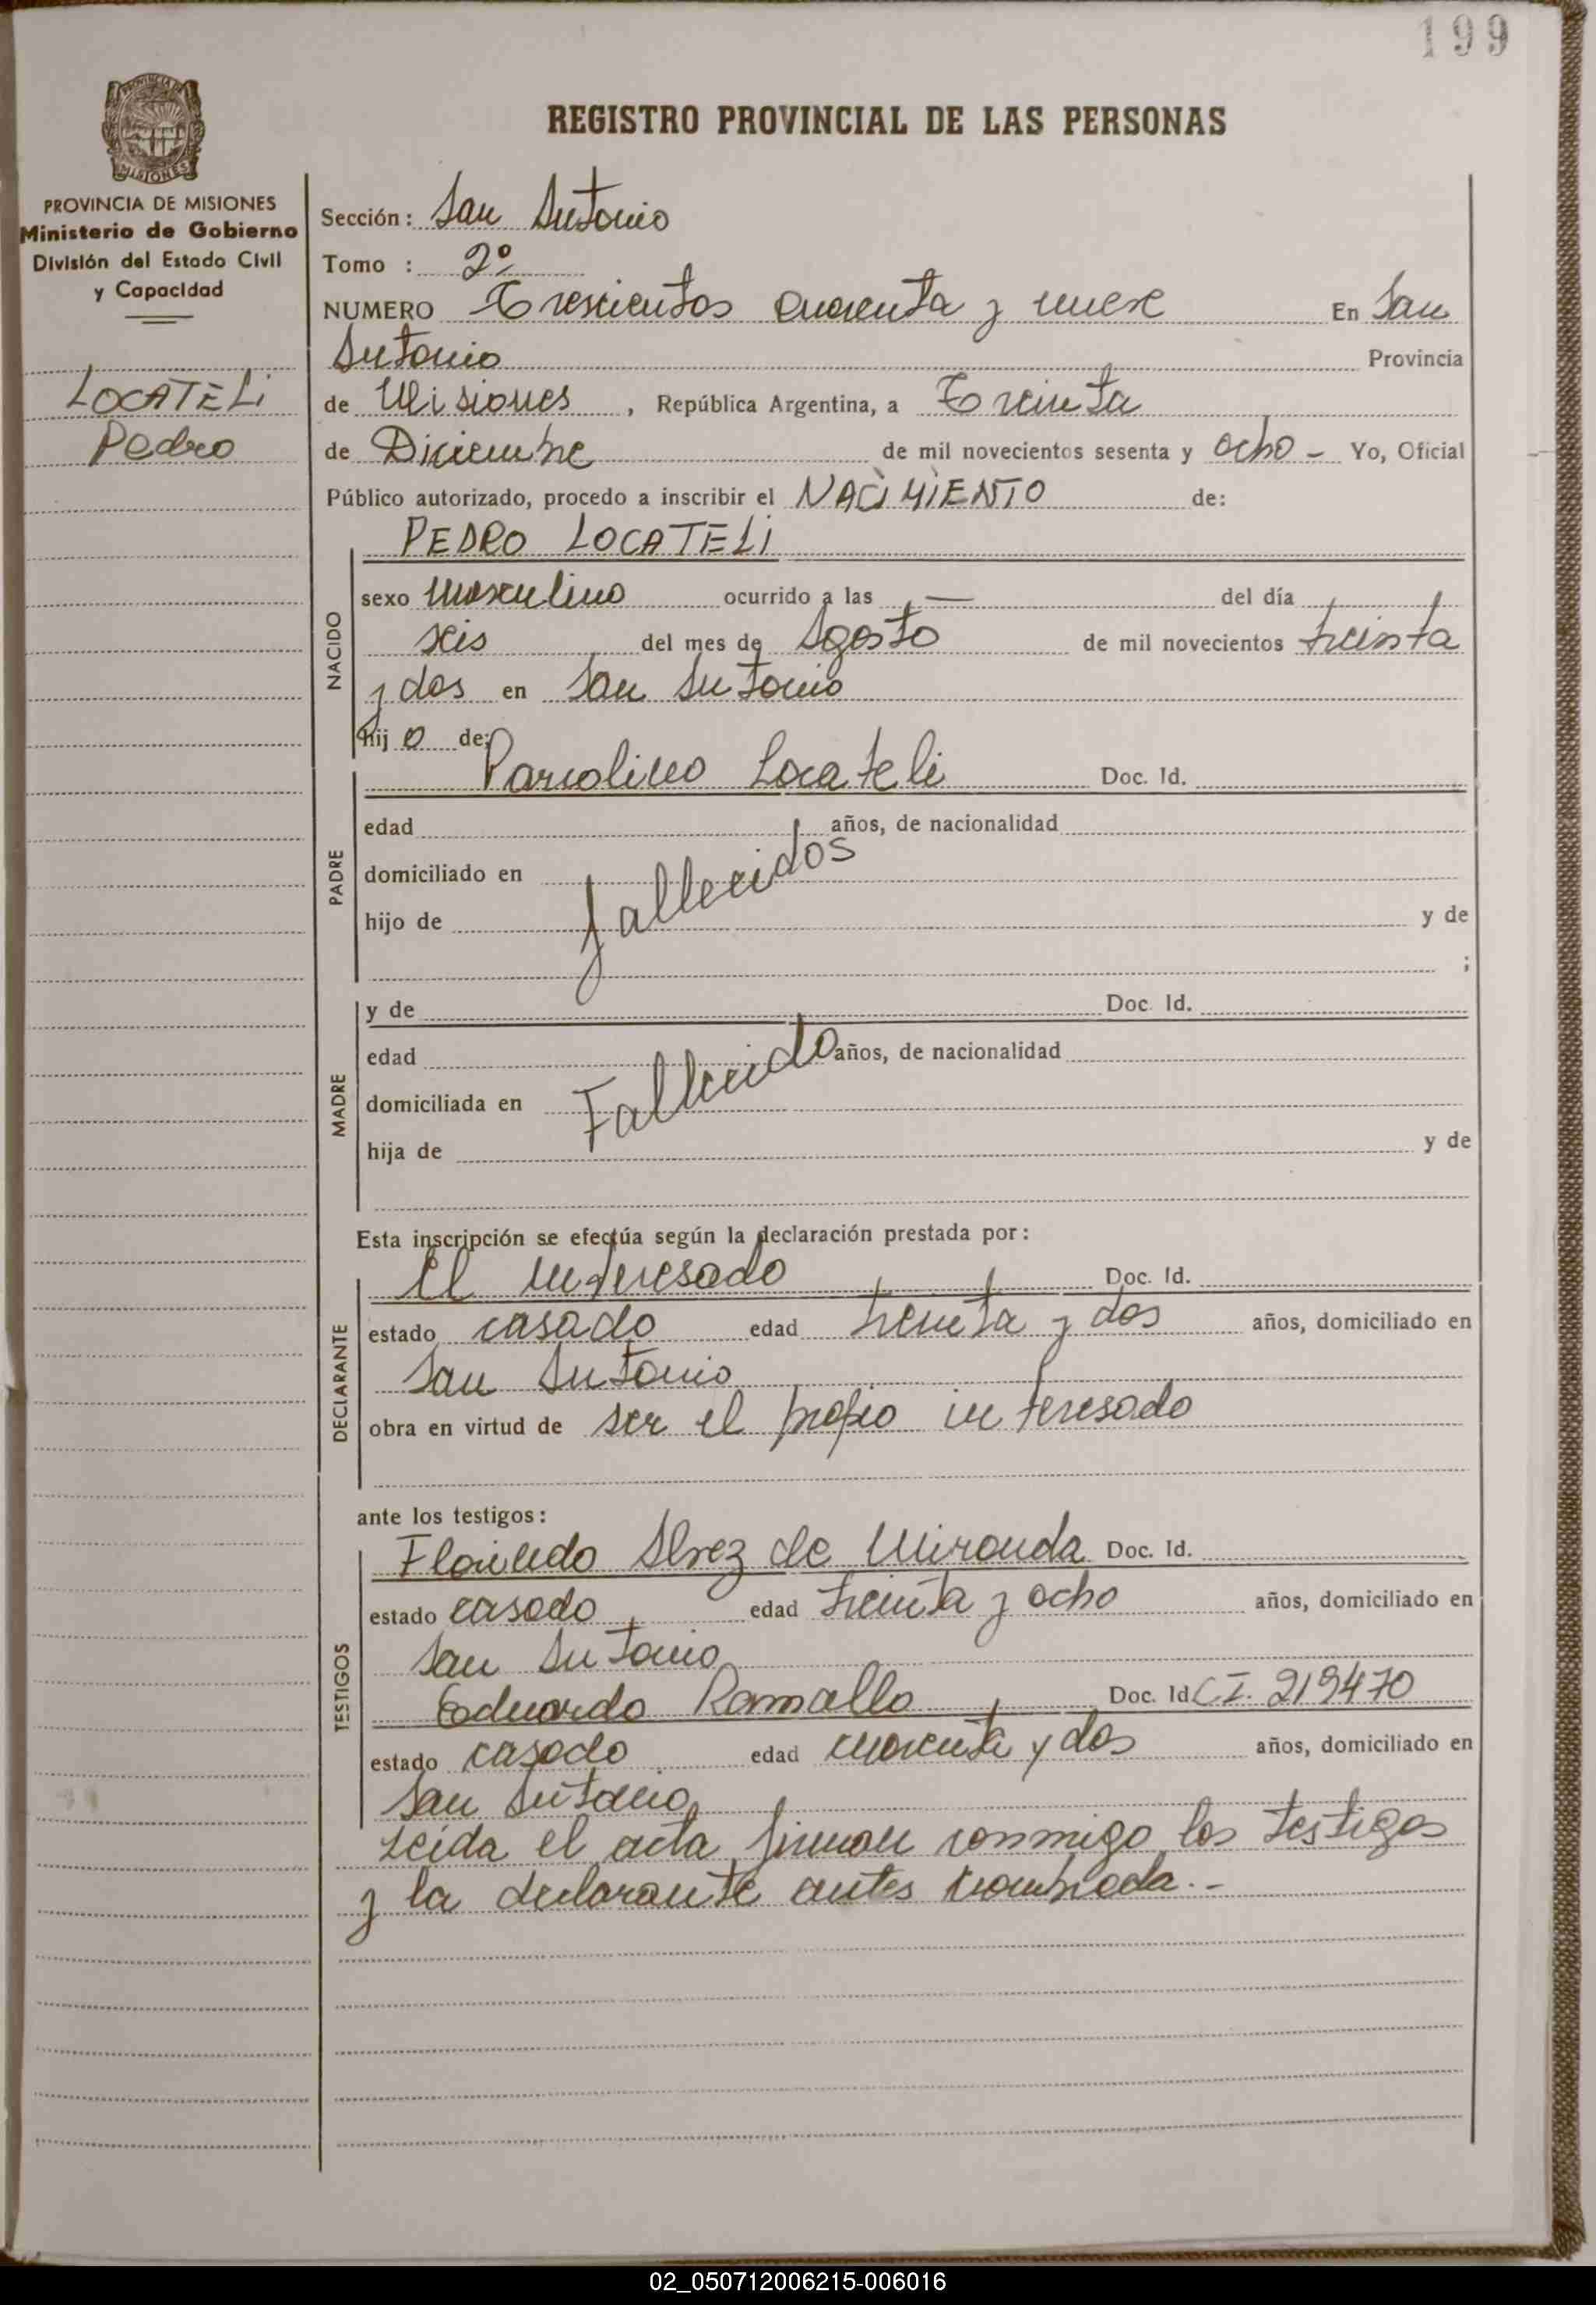 199
REGISTRO PROVINCIAL DE LAS PERSONAS
PROVINCIA DE MISIONES
Ministerio de Gobierno
División del Estado Civil
y Capacidad
LOCATELi
Pedro
Sección: San Antonio
Tomo : 2º
NUMERO Trescientos cuarenta y nueve En San
Antonio Provincia
de Misiones, República Argentina, a Treinta
de Diciembre de mil novecientos sesenta y ocho - Yo, Oficial
Público autorizado, procedo a inscribir el NACiMiENTO de:
PEDRO LOCATELi
NACIDO
sexo masculino ocurrido a las — del día
seis del mes de Agosto de mil novecientos treinta
y dos en San Antonio
hijo de:
PADRE
Locateli Doc. Id.
edad años, de nacionalidad
domiciliado en fallecidos
hijo de y de
;
MADRE
y de Doc. Id.
edad años, de nacionalidad
domiciliada en Fallecido
hija de y de
Esta inscripción se efectúa según la declaración prestada por:
DECLARANTE
El interesado Doc. Id.
estado casado edad treinta y dos años, domiciliado en
San Antonio
obra en virtud de ser el propio interesado
ante los testigos:
TESTIGOS
de Miranda Doc. Id.
estado casado edad treinta y ocho años, domiciliado en
San Antonio
Eduardo Ramallo Doc. Id C.I. 219470
estado casado edad cuarenta y dos años, domiciliado en
San Antonio
Leída el acta firman conmigo los testigos
y la declarante antes nombrada.-
02_050712006215-006016